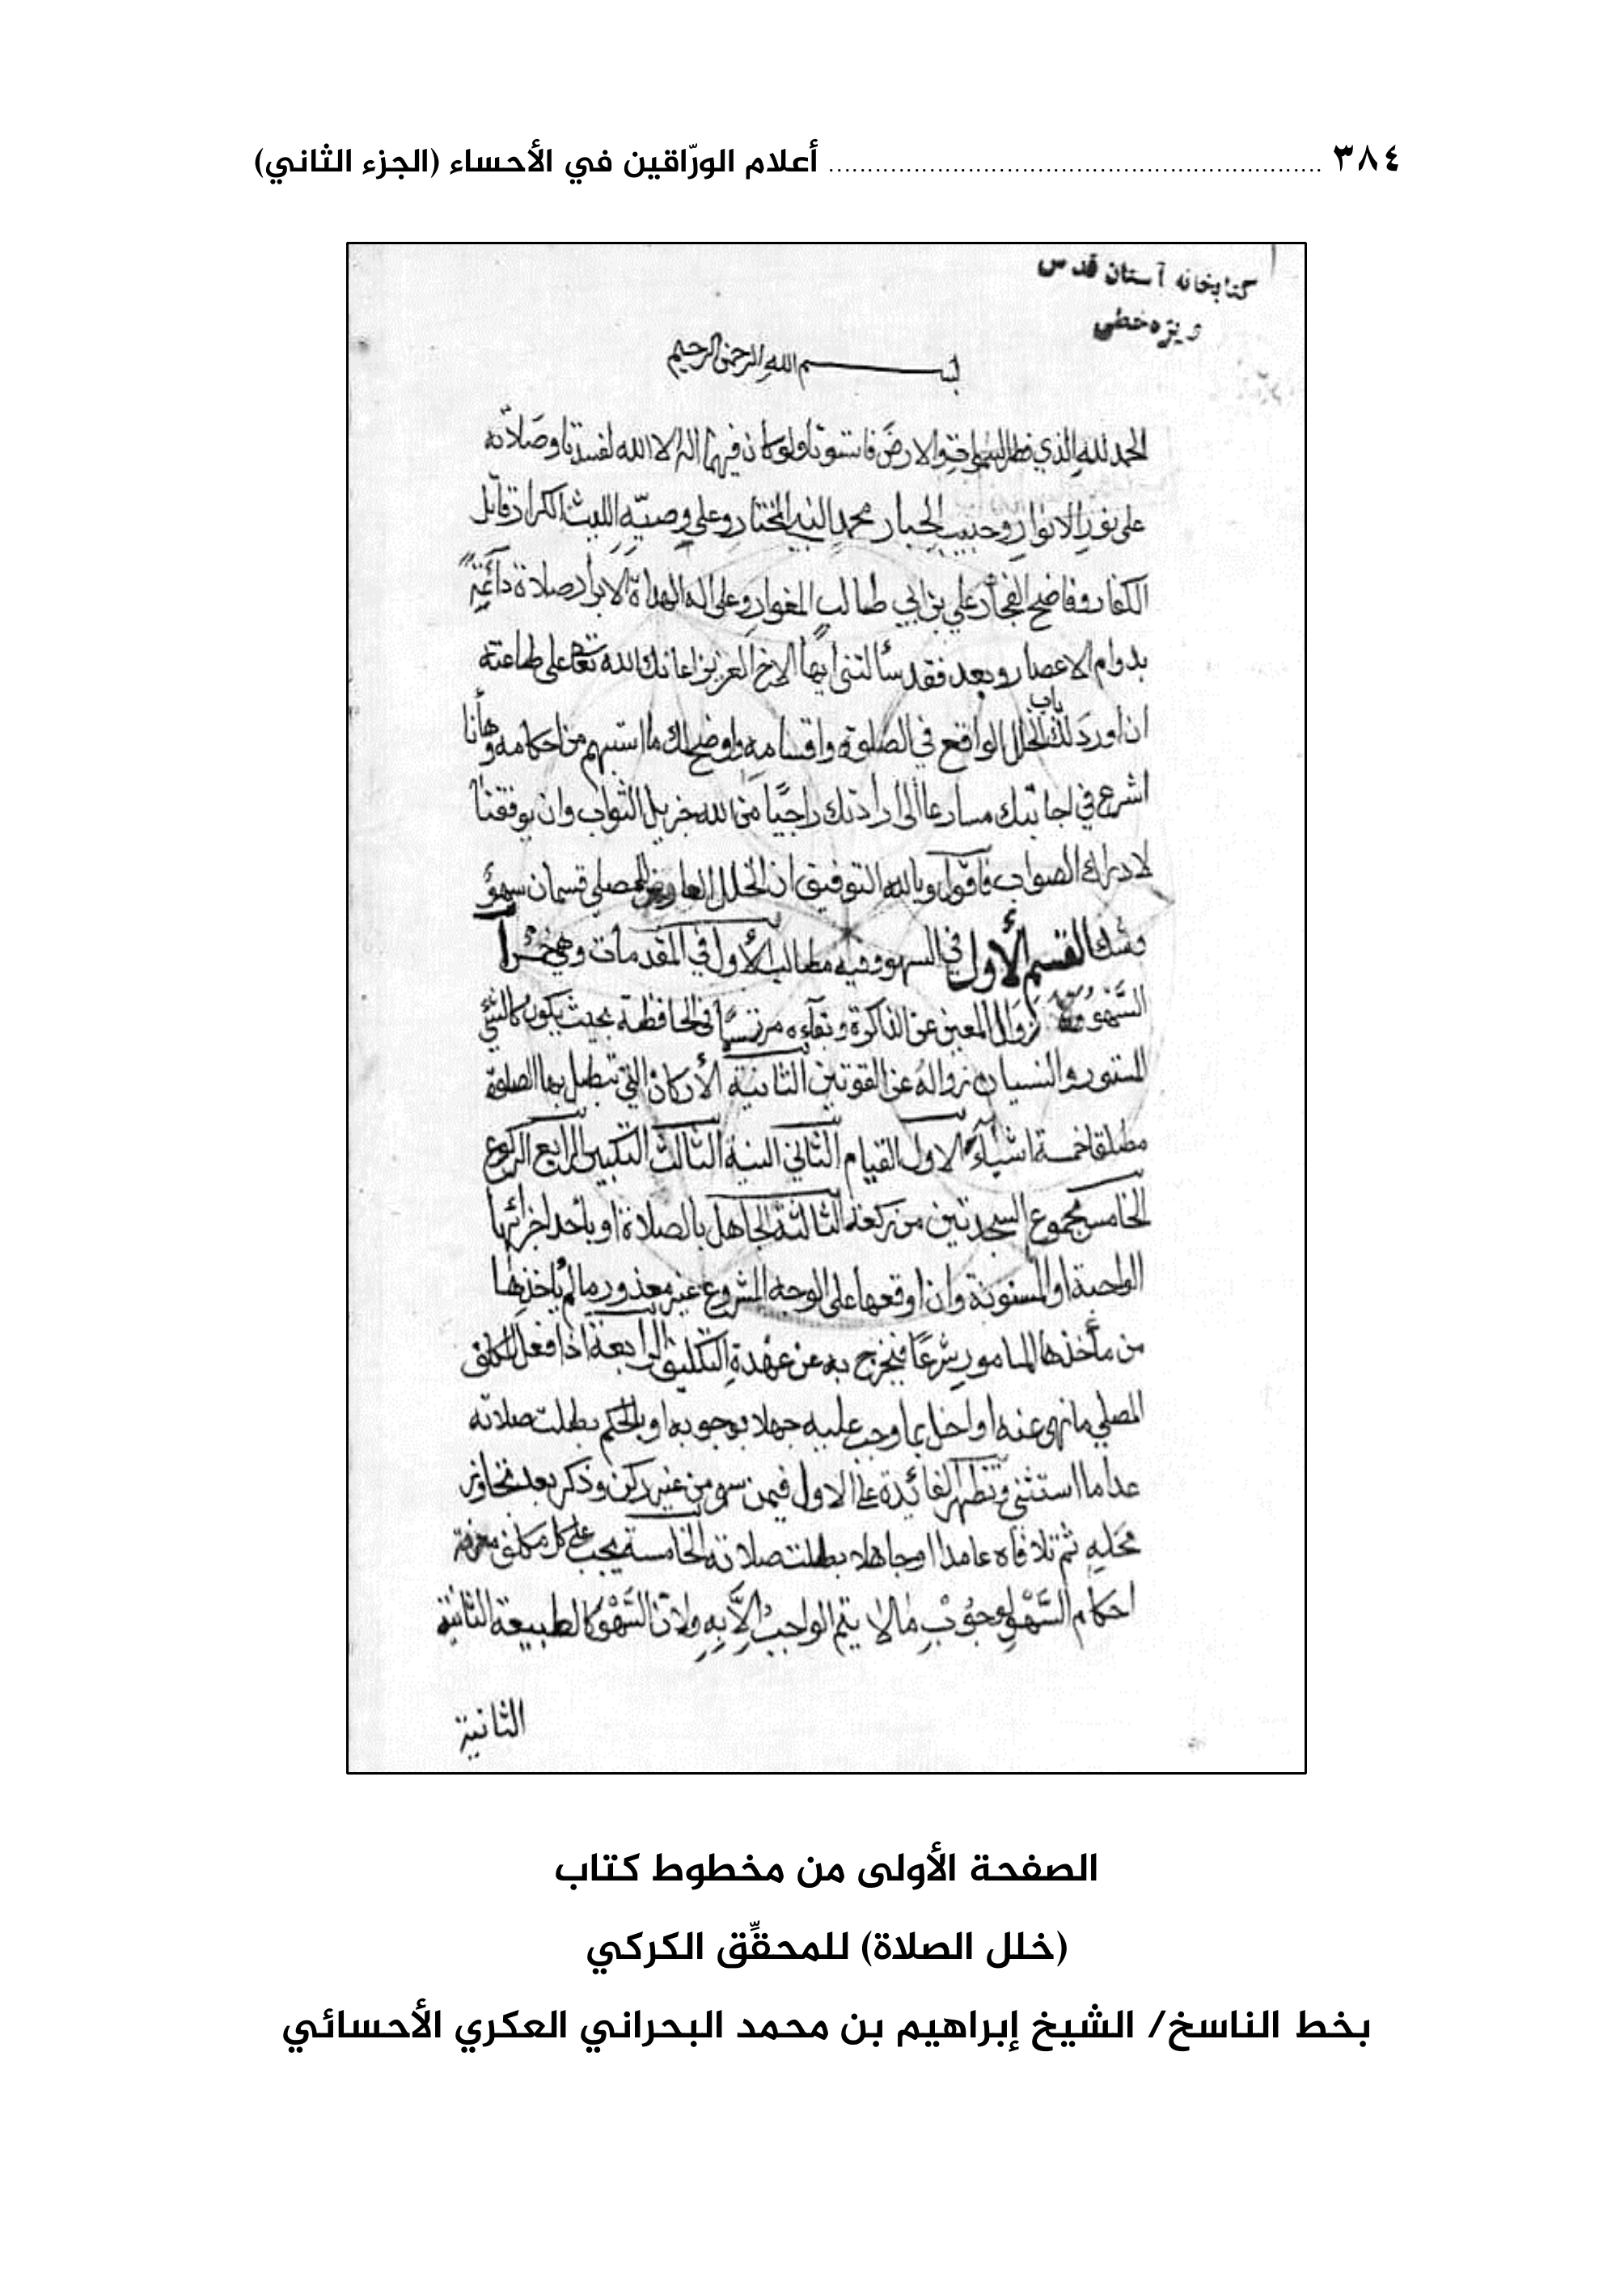 ٣٨٤ ................................ أعلام الورّاقين في الأحساء (الجزء الثاني)
كتابخانه آستان قدس
ويژه خطى
بسم الله الرحمن الرحيم
الحمد لله الذي فطر السموات والارض فاستوتا ولو كان فيهما الهة الا الله لفسدتا وصلاته
على نور الانوار وحبيب الجبار محمد النبي المختار وعلى وصيه الليث الكرار قاتل
الكفار وفاضح الفجار علي بن ابي طالب المغوار وعلى اله الهداة الابرار صلاة دائمة
بدوام الاعصار وبعد فقد سألتني ايها الاخ العزيز اعانك الله تعالى على طاعته
ان اورد لك باب الخلل الواقع في الصلوة واقسامه واوضح لك ما استبهم من احكامه وها أنا
اشرع في اجابتك مسارعا الى ارادتك راجيًا من الله جزيل الثواب وان يوفقنا
لادراك الصواب فأقول وبالله التوفيق ان الخلل العارض للمصلي قسمان سهو
وشك القسم الأول في السهو وفيه مطالب الأول في المقدمات وهي
السهو زوال المعين عن الذاكرة وبقاءه مرتسمًا في الحافظة بحيث يكون كالشيء
المستور والنسيان زواله عن القوتين الثانية الأركان التي تبطل بها الصلوة
مطلقا خمسة اشياء الاول القيام الثاني النية الثالث التكبير الرابع الركوع
الخامس مجموع السجدتين من ركعة الثالثة الجاهل بالصلاة او بأحد اجزائها
الواجبة او المسنونة وان اوقعها على الوجه المشروع غير معذور ما لم يأخذها
من مأخذها المامور شرعًا فيخرج به عن عهدة التكليف الرابعة اذا فعل المكلف
المصلي ما نهي عنه او اخل بما وجب عليه جهلا بوجوبه او بالحكم بطلت صلاته
عدا ما استثني وتظهر الفائدة على الاول فيمن سهو من غير ركن وذكر بعد تجاوز
محله ثم تلافاه عامدا او جاهلا بطلت صلاته الخامسة يجب على كل مكلف معرفة
احكام السَّهْوِ لوجوب ما لا يتم الواجب الا به ولان السهو كالطبيعة الثانية
الثانية
الصفحة الأولى من مخطوط كتاب
(خلل الصلاة) للمحقِّق الكركي
بخط الناسخ/ الشيخ إبراهيم بن محمد البحراني العكري الأحسائي